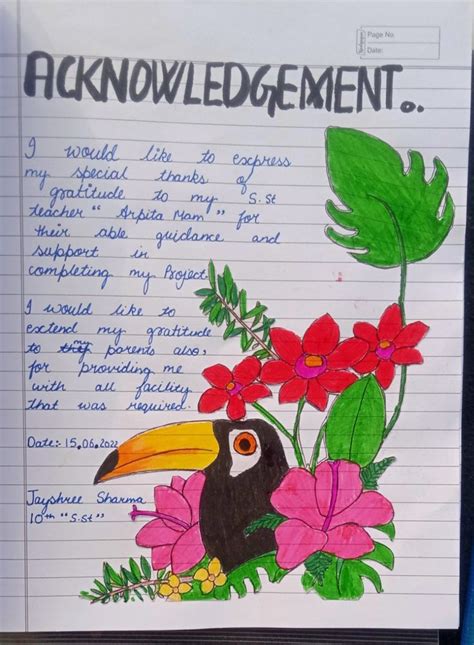 Page No.
Date:
ACKNOWLEDGEMENT..
I would like to express
my special thanks of
gratitude to my S.St
teacher "Arpita Mam" for
their able guidance and
support in
completing my Project.
I would like to
extend my gratitude
to my parents also,
for providing me
with all facility
that was required.
Date:- 15.06.2022
Jayshree Sharma
10th "S.St"